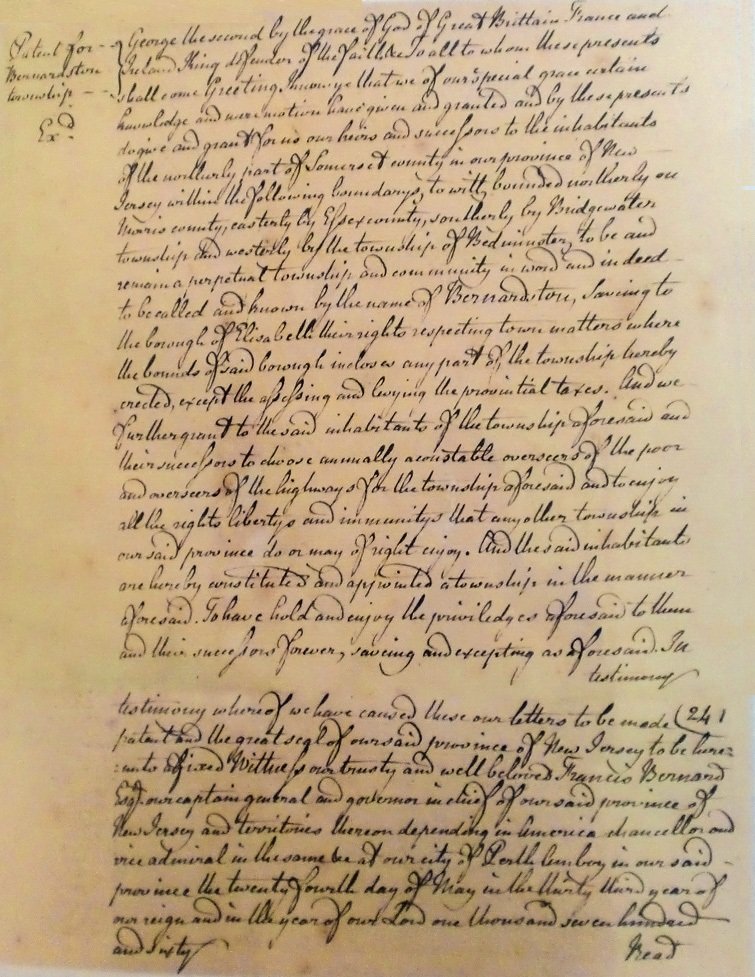 Patent for
Bernardston
township
Exd.
George the second by the grace of God of Great Brittain France and
Ireland King defender of the faith &c To all to whom these presents
shall come Greeting. Know ye that we of our special grace certain
knowledge and mere motion have given and granted and by these presents
do give and grant for us our heirs and successors to the inhabitants
of the northerly part of Somerset county in our province of New
Jersey within the following boundarys, to witt, bounded northerly on
Morris county, easterly by Essex county, southerly by Bridgewater
township and westerly by the township of Bedminster, to be and
remain a perpetual township and community in word and in deed
to be called and known by the name of Bernardston, Saveing to
the borough of Elisabeth their rights respecting town matters where
the bounds of said borough incloses any part of the township hereby
erected, except the assessing and levying the provintial taxes. And we
further grant to the said inhabitants of the township aforesaid and
their successors to choose annually a constable overseers of the poor
and overseers of the highways for the township aforesaid and to enjoy
all the rights libertys and immunitys that any other township in
our said province do or may of right enjoy. And the said inhabitants
are hereby constituted and appointed a township in the manner
aforesaid. To have hold and enjoy the priviledges aforesaid to them
and their successors forever, saveing and excepting as aforesaid. In
testimony
testimony whereof we have caused these our letters to be made (241
patent and the great seal of our said province of New Jersey to be here=
=unto afixed Wittness our trusty and well beloved Francis Bernard
Esqr. our captain general and governor in chief of our said province of
New Jersey and territories thereon depending in America chancellor and
vice admiral in the same &c at our city of Perth Amboy in our said
province the twenty fourth day of May in the thirty third year of
our reign and in the year of our Lord one thousand seven hundred
and sixty
Read